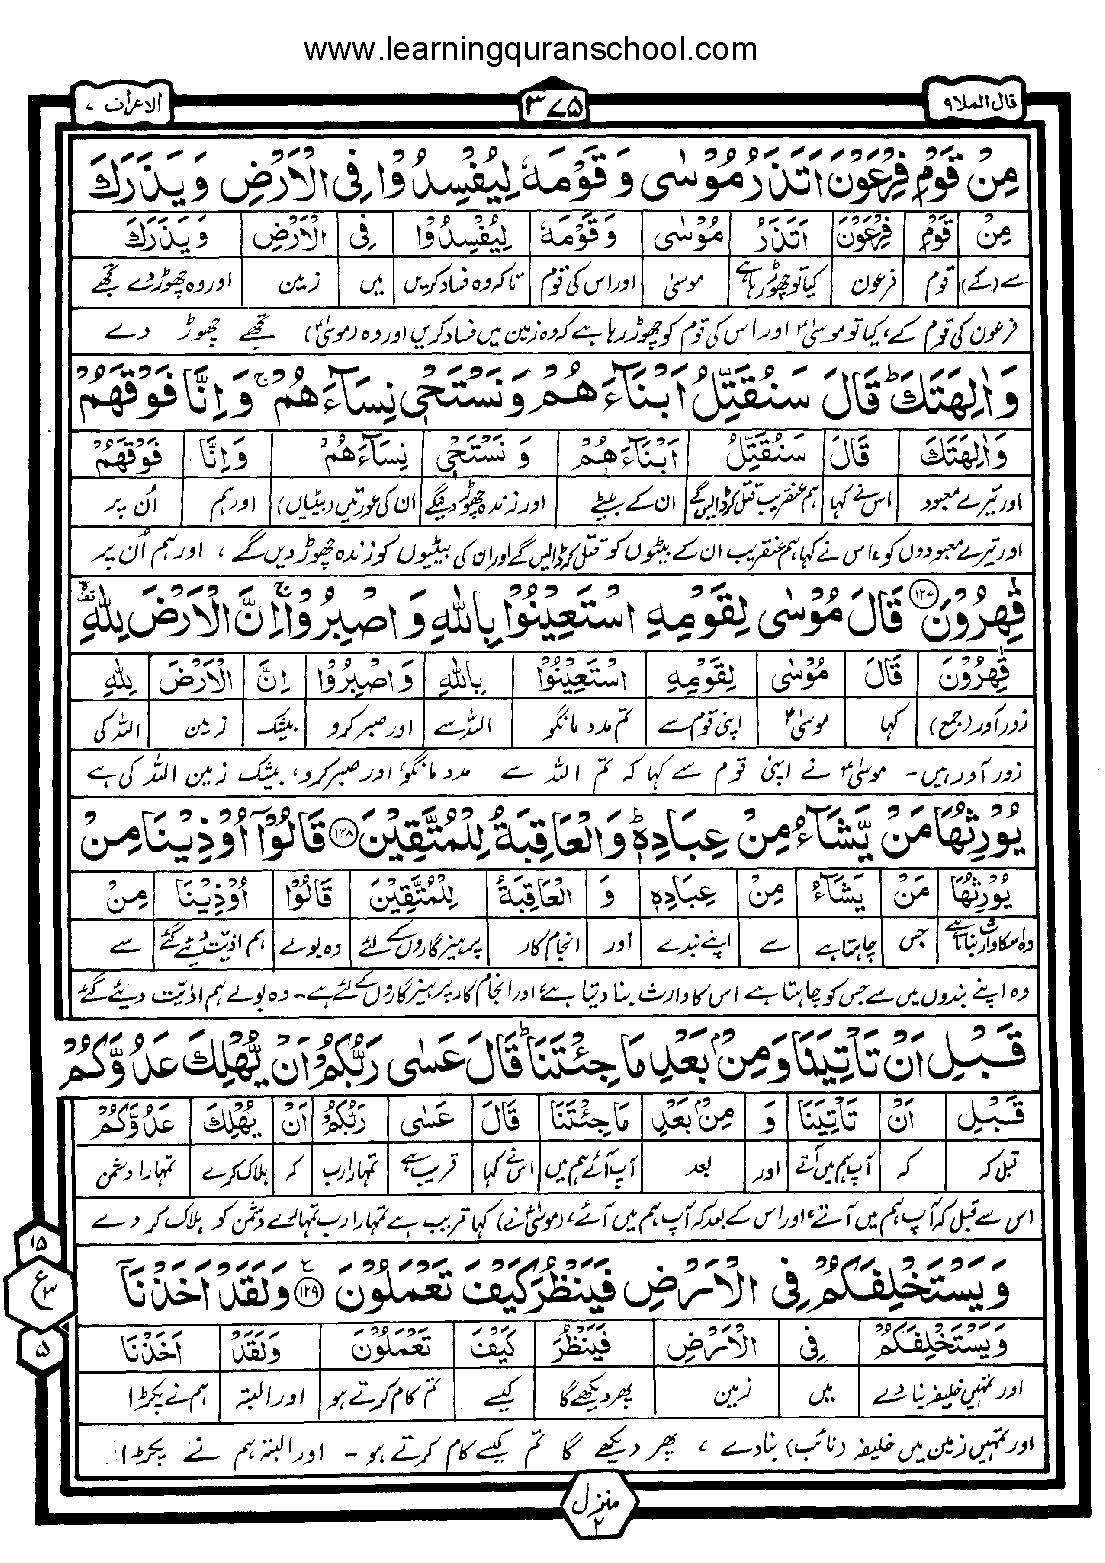 www.learningquranschool.com
قال الملا ٩ ٣٧٥ الاعراف ٧
مِنْ قَوْمِ فِرْعَوْنَ اَتَذَرُ مُوْسٰى وَقَوْمَهٗ لِيُفْسِدُوْا فِى الْاَرْضِ وَيَذَرَكَ
مِنْ قَوْمِ فِرْعَوْنَ اَتَذَرُ مُوْسٰى وَقَوْمَهٗ لِيُفْسِدُوْا فِى الْاَرْضِ وَيَذَرَكَ
سے (کے) قوم فرعون کیا تو چھوڑ رہا ہے موسیٰ اور اس کی قوم تاکہ وہ فساد کریں میں زمین اور وہ چھوڑ دے تجھے
فرعون کی قوم کے، کیا تو موسیٰؑ اور اس کی قوم کو چھوڑ رہا ہے کہ وہ زمین میں فساد کریں اور وہ (موسیٰؑ) تجھے چھوڑ دے
وَاٰلِهَتَكَ ؕ قَالَ سَنُقَتِّلُ اَبْنَآءَهُمْ وَنَسْتَحْىٖ نِسَآءَهُمْ ۚ وَاِنَّا فَوْقَهُمْ
وَاٰلِهَتَكَ قَالَ سَنُقَتِّلُ اَبْنَآءَهُمْ وَنَسْتَحْىٖ نِسَآءَهُمْ وَاِنَّا فَوْقَهُمْ
اور تیرے معبود اس نے کہا ہم عنقریب قتل کر ڈالیں گے ان کے بیٹے اور زندہ چھوڑ دینگے ان کی عورتیں (بیٹیاں) اور ہم اُن پر
اور تیرے معبودوں کو، اس نے کہا ہم عنقریب ان کے بیٹوں کو قتل کر ڈالیں گے اور ان کی بیٹیوں کو زندہ چھوڑ دیں گے، اور ہم اُن پر
قٰهِرُوْنَ ١٢٧ قَالَ مُوْسٰى لِقَوْمِهِ اسْتَعِيْنُوْا بِاللّٰهِ وَاصْبِرُوْا ۚ اِنَّ الْاَرْضَ لِلّٰهِ
قٰهِرُوْنَ قَالَ مُوْسٰى لِقَوْمِهِ اسْتَعِيْنُوْا بِاللّٰهِ وَاصْبِرُوْا اِنَّ الْاَرْضَ لِلّٰهِ
زور آور (جمع) کہا موسیٰؑ اپنی قوم سے تم مدد مانگو اللہ سے اور صبر کرو بیشک زمین اللہ کی
زور آور ہیں۔ موسیٰؑ نے اپنی قوم سے کہا کہ تم اللہ سے مدد مانگو، اور صبر کرو، بیشک زمین اللہ کی ہے
يُوْرِثُهَا مَنْ يَّشَآءُ مِنْ عِبَادِهٖ ؕ وَالْعَاقِبَةُ لِلْمُتَّقِيْنَ ١٢٨ قَالُوْٓا اُوْذِيْنَا مِنْ
يُوْرِثُهَا مَنْ يَّشَآءُ مِنْ عِبَادِهٖ وَ الْعَاقِبَةُ لِلْمُتَّقِيْنَ قَالُوْا اُوْذِيْنَا مِنْ
وہ اسکا وارث بناتا ہے جس چاہتا ہے سے اپنے بندے اور انجام کار پرہیز گاروں کے لئے وہ بولے ہم اذیّت دیئے گئے سے
وہ اپنے بندوں میں سے جس کو چاہتا ہے اس کا وارث بنا دیتا ہے، اور انجام کار پرہیز گاروں کے لئے ہے۔ وہ بولے ہم اذیّت دیئے گئے
قَبْلِ اَنْ تَاْتِيَنَا وَمِنْۢ بَعْدِ مَا جِئْتَنَا ؕ قَالَ عَسٰى رَبُّكُمْ اَنْ يُّهْلِكَ عَدُوَّكُمْ
قَبْلِ اَنْ تَاْتِيَنَا وَ مِنْۢ بَعْدِ مَا جِئْتَنَا قَالَ عَسٰى رَبُّكُمْ اَنْ يُّهْلِكَ عَدُوَّكُمْ
قبل کہ کہ آپ ہم میں آتے اور بعد آپ آئے ہم میں اس نے کہا قریب ہے تمہارا رب کہ ہلاک کرے تمہارا دشمن
اس سے قبل کہ آپ ہم میں آتے، اور اس کے بعد کہ آپ ہم میں آئے، (موسیٰؑ نے) کہا قریب ہے تمہارا رب تمہارے دشمن کو ہلاک کر دے
وَيَسْتَخْلِفَكُمْ فِى الْاَرْضِ فَيَنْظُرَ كَيْفَ تَعْمَلُوْنَ ١٢٩ وَلَقَدْ اَخَذْنَآ
وَيَسْتَخْلِفَكُمْ فِى الْاَرْضِ فَيَنْظُرَ كَيْفَ تَعْمَلُوْنَ وَلَقَدْ اَخَذْنَا
اور تمہیں خلیفہ بنا دے میں زمین پھر دیکھے گا کیسے تم کام کرتے ہو اور البتہ ہم نے پکڑا
اور تمہیں زمین میں خلیفہ (نائب) بنا دے، پھر دیکھے گا تم کیسے کام کرتے ہو۔ اور البتہ ہم نے پکڑا
١٥
ع ٣
٥
منزل ٢